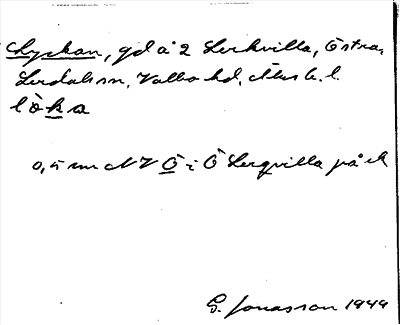 Lyckan, gd å 2 Lerkvilla, Östra,
Lerdals sn, Valbo hd, Älvsb. l.
lò̀ka
0,5 mm NV Ö i Ö Lerqvilla på ek
G. Jonasson 1949